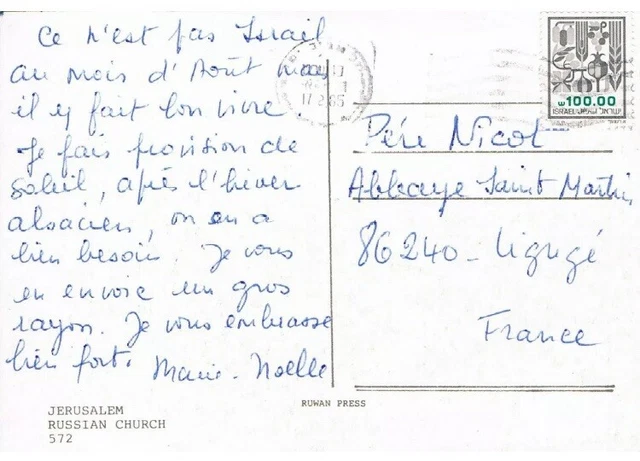 Ce n'est pas Israël
au mois d'Août mais
il y fait bon vivre.
Je fais provision de
soleil, après l'hiver
alsacien, on en a
bien besoin. Je vous
en envoie un gros
rayon. Je vous embrasse
bien fort. Marie-Noëlle
100.00
ISRAEL
ישראל
Père Nicol
Abbaye Saint Martin
86240 - Ligugé
France
RUWAN PRESS
JERUSALEM
RUSSIAN CHURCH
572